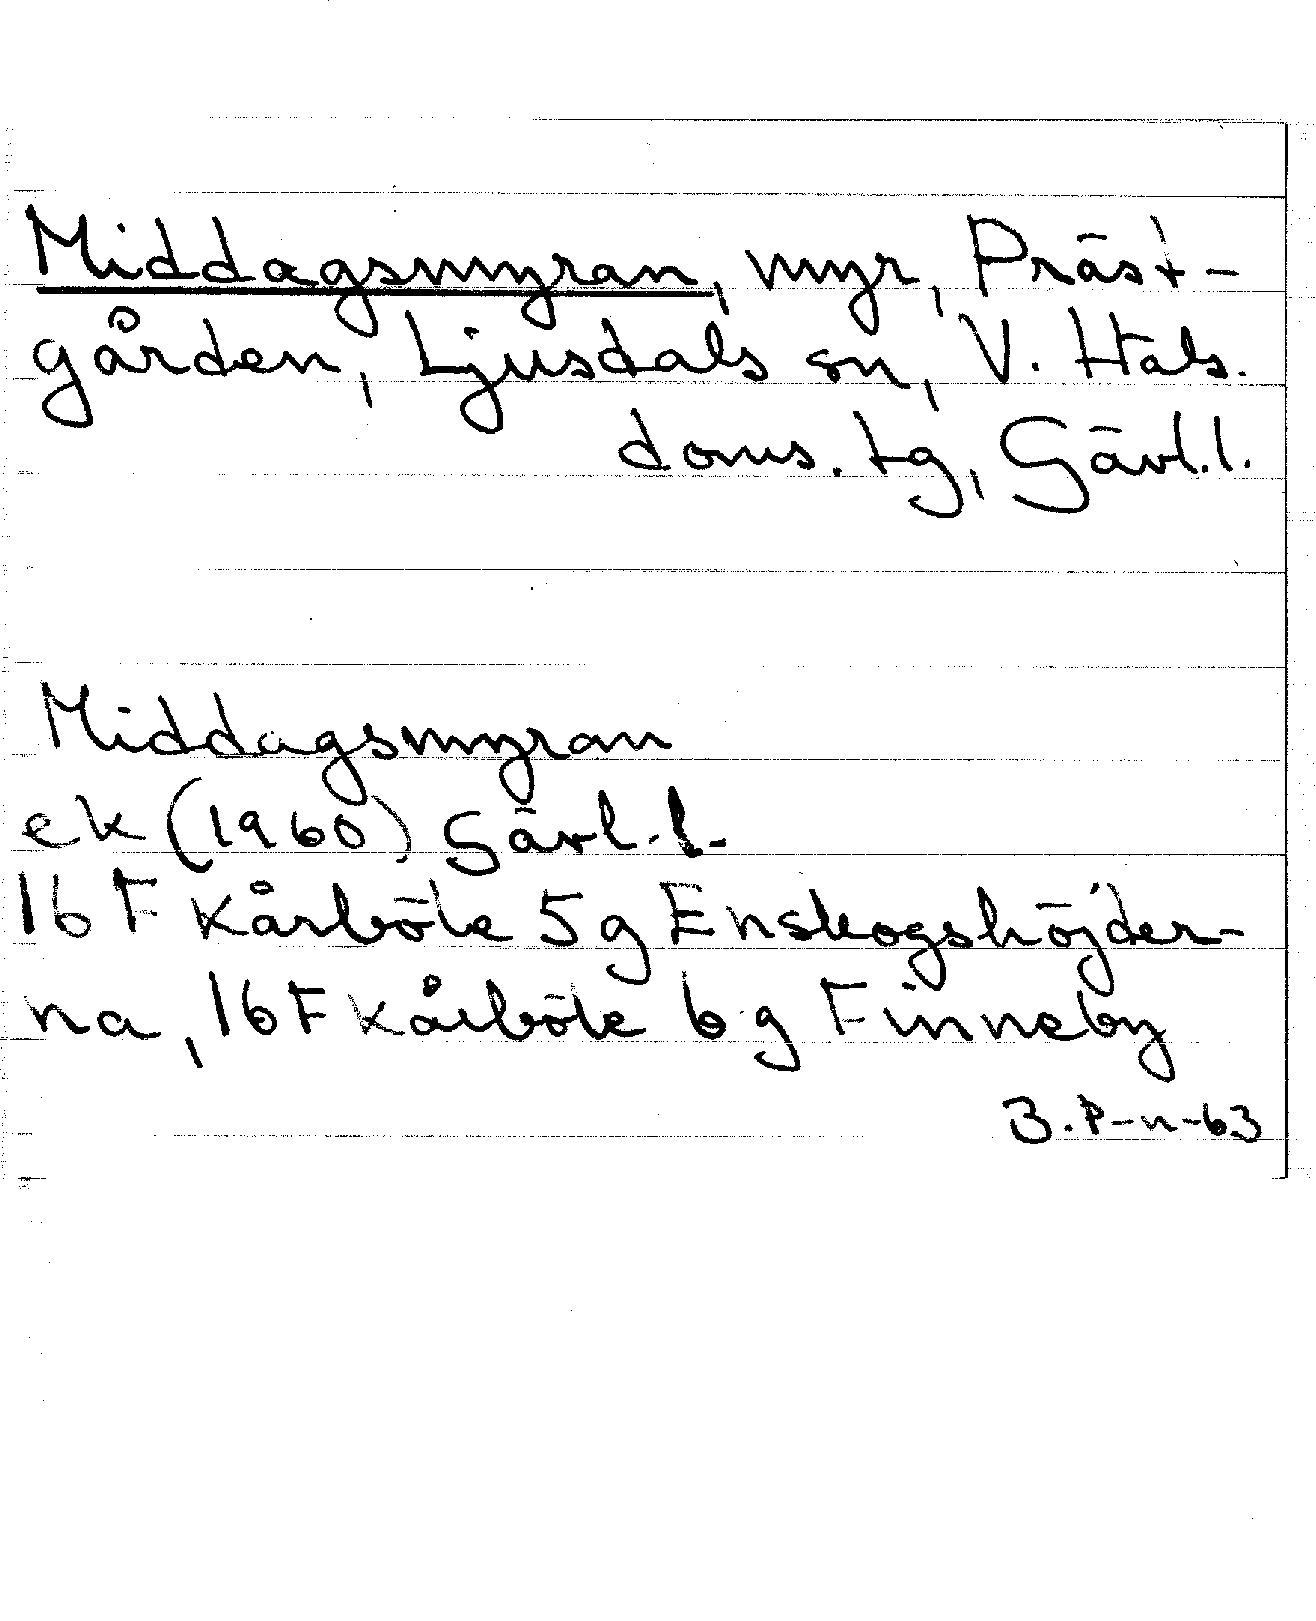 Middagsmyran, myr, Präst-
gården, Ljusdals sn, V. Häls.
doms. tg, Gävl.l.
Middagsmyran
ek (1960) Gävl.l.
16 F Kårböle 5 g Enskogshöjder-
na, 16 F Kårböle 6 g Finneby
B.P-n-63